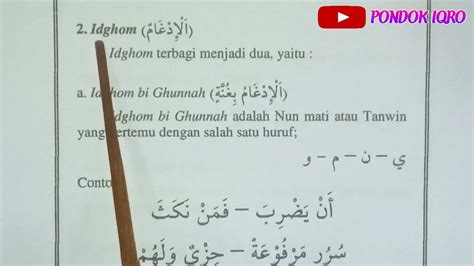 PONDOK IQRO
2. Idghom (اَلْإِدْغَامُ)
Idghom terbagi menjadi dua, yaitu :
a. Idghom bi Ghunnah (اَلْإِدْغَامُ بِغُنَّةٍ)
Idghom bi Ghunnah adalah Nun mati atau Tanwin
yang bertemu dengan salah satu huruf;
ي – ن – م – و
Conto
أَنْ يَضْرِبَ – فَمَنْ نَكَثَ
سُرُر مَرْفُوعَةٌ – حِزْيٌ وَلَهُمْ